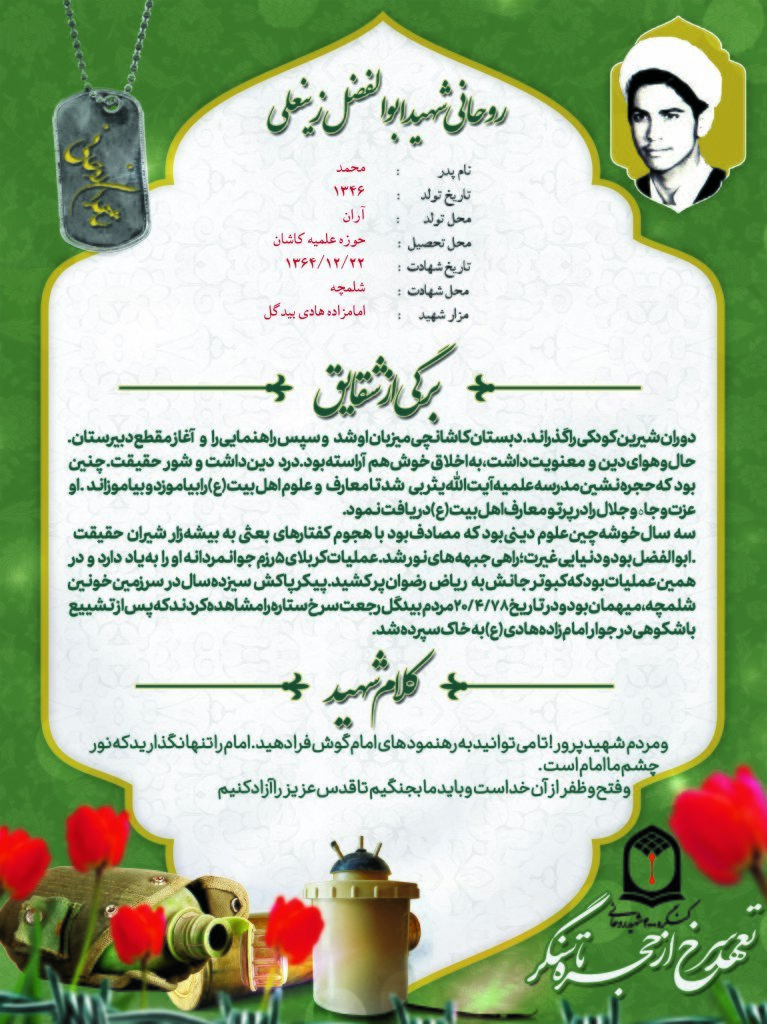 روحانی شهید ابوالفضل زینعلی
نام پدر : محمد
تاریخ تولد : ۱۳۴۶
محل تولد : آران
محل تحصیل : حوزه علمیه کاشان
تاریخ شهادت : ۱۳۶۴/۱۲/۲۲
محل شهادت : شلمچه
مزار شهید : امامزاده هادی بیدگل
برگی از شقایق
دوران شیرین کودکی را گذراند. دبستان کاشانچی میزبان او شد و سپس راهنمایی را و آغاز مقطع دبیرستان.
حال و هوای دین و معنویت داشت، به اخلاق خوش هم آراسته بود. درد دین داشت و شور حقیقت. چنین
بود که حجره نشین مدرسه علمیه آیت الله یثربی شد تا معارف و علوم اهل بیت(ع) را بیاموزد و بیاموزاند .او
عزت و جاه و جلال را در پرتو معارف اهل بیت(ع) دریافت نمود.
سه سال خوشه چین علوم دینی بود که مصادف بود با هجوم کفتارهای بعثی به بیشه زار شیران حقیقت
.ابوالفضل بود و دنیایی غیرت؛ راهی جبهه های نور شد. عملیات کربلای ۵ رزم جوانمردانه او را به یاد دارد و در
همین عملیات بود که کبوتر جانش به ریاض رضوان پر کشید. پیکر پاکش سیزده سال در سرزمین خونین
شلمچه، میهمان بود و در تاریخ ۲۰/۴/۷۸ مردم بیدگل رجعت سرخ ستاره را مشاهده کردند که پس از تشییع
باشکوهی در جوار امام زاده هادی (ع) به خاک سپرده شد.
کلام شهید
و مردم شهید پرور! تا می توانید به رهنمودهای امام گوش فرا دهید. امام را تنها نگذارید که نور
چشم ما امام است.
و فتح و ظفر از آن خداست و باید ما بجنگیم تا قدس عزیز را آزاد کنیم
تعهد سرخ از حجره تا سنگر